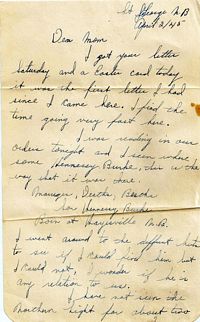 St George N.B
April 2/45
Dear Mom
I got your letter
Saturday and a Easter card today
it was the first letter I had
since I came here. I find the
time going very fast here.
I was reading in our
orders tonight and I seen where
some Hennessy Burke, this is the
way that it was there.
Burke
Hennessy, Burke
Born at Hayesville N.B.
I went around to the different huts
to see if I could find him but
I could not, I wonder if he is
any relation to us.
I have not seen the
Northern light for about two